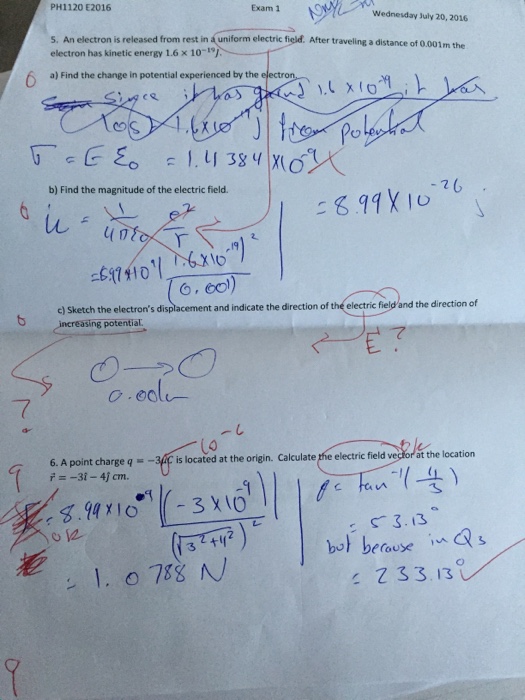 PH1120 E2016 Exam 1
Wednesday July 20, 2016
5. An electron is released from rest in a uniform electric field. After traveling a distance of 0.001m the
electron has kinetic energy 1.6 × 10⁻¹⁹J.
a) Find the change in potential experienced by the electron.
Since it has 1.6 x10⁻¹⁹ it has
lost 1.6x10 j from potential
= E ε₀ = 1.41384 x10⁻⁹
b) Find the magnitude of the electric field.
u = 1/4πε₀ e²/r
(1.6x10⁻¹⁹)²/(0.001)
= 8.99 x 10⁻²⁶ j
c) Sketch the electron's displacement and indicate the direction of the electric field and the direction of
increasing potential.
E?
?
10⁻⁶
6. A point charge q = −3μC is located at the origin. Calculate the electric field vector at the location
r⃗ = −3î − 4ĵ cm.
ok
9
= 8.99 x10⁹ |(-3 x10⁻⁹)|/(√3²+4²)²
ok
= 1.0788 N
tan⁻¹(4/3)
= 53.13°
but because in Q3
= 233.13°
9